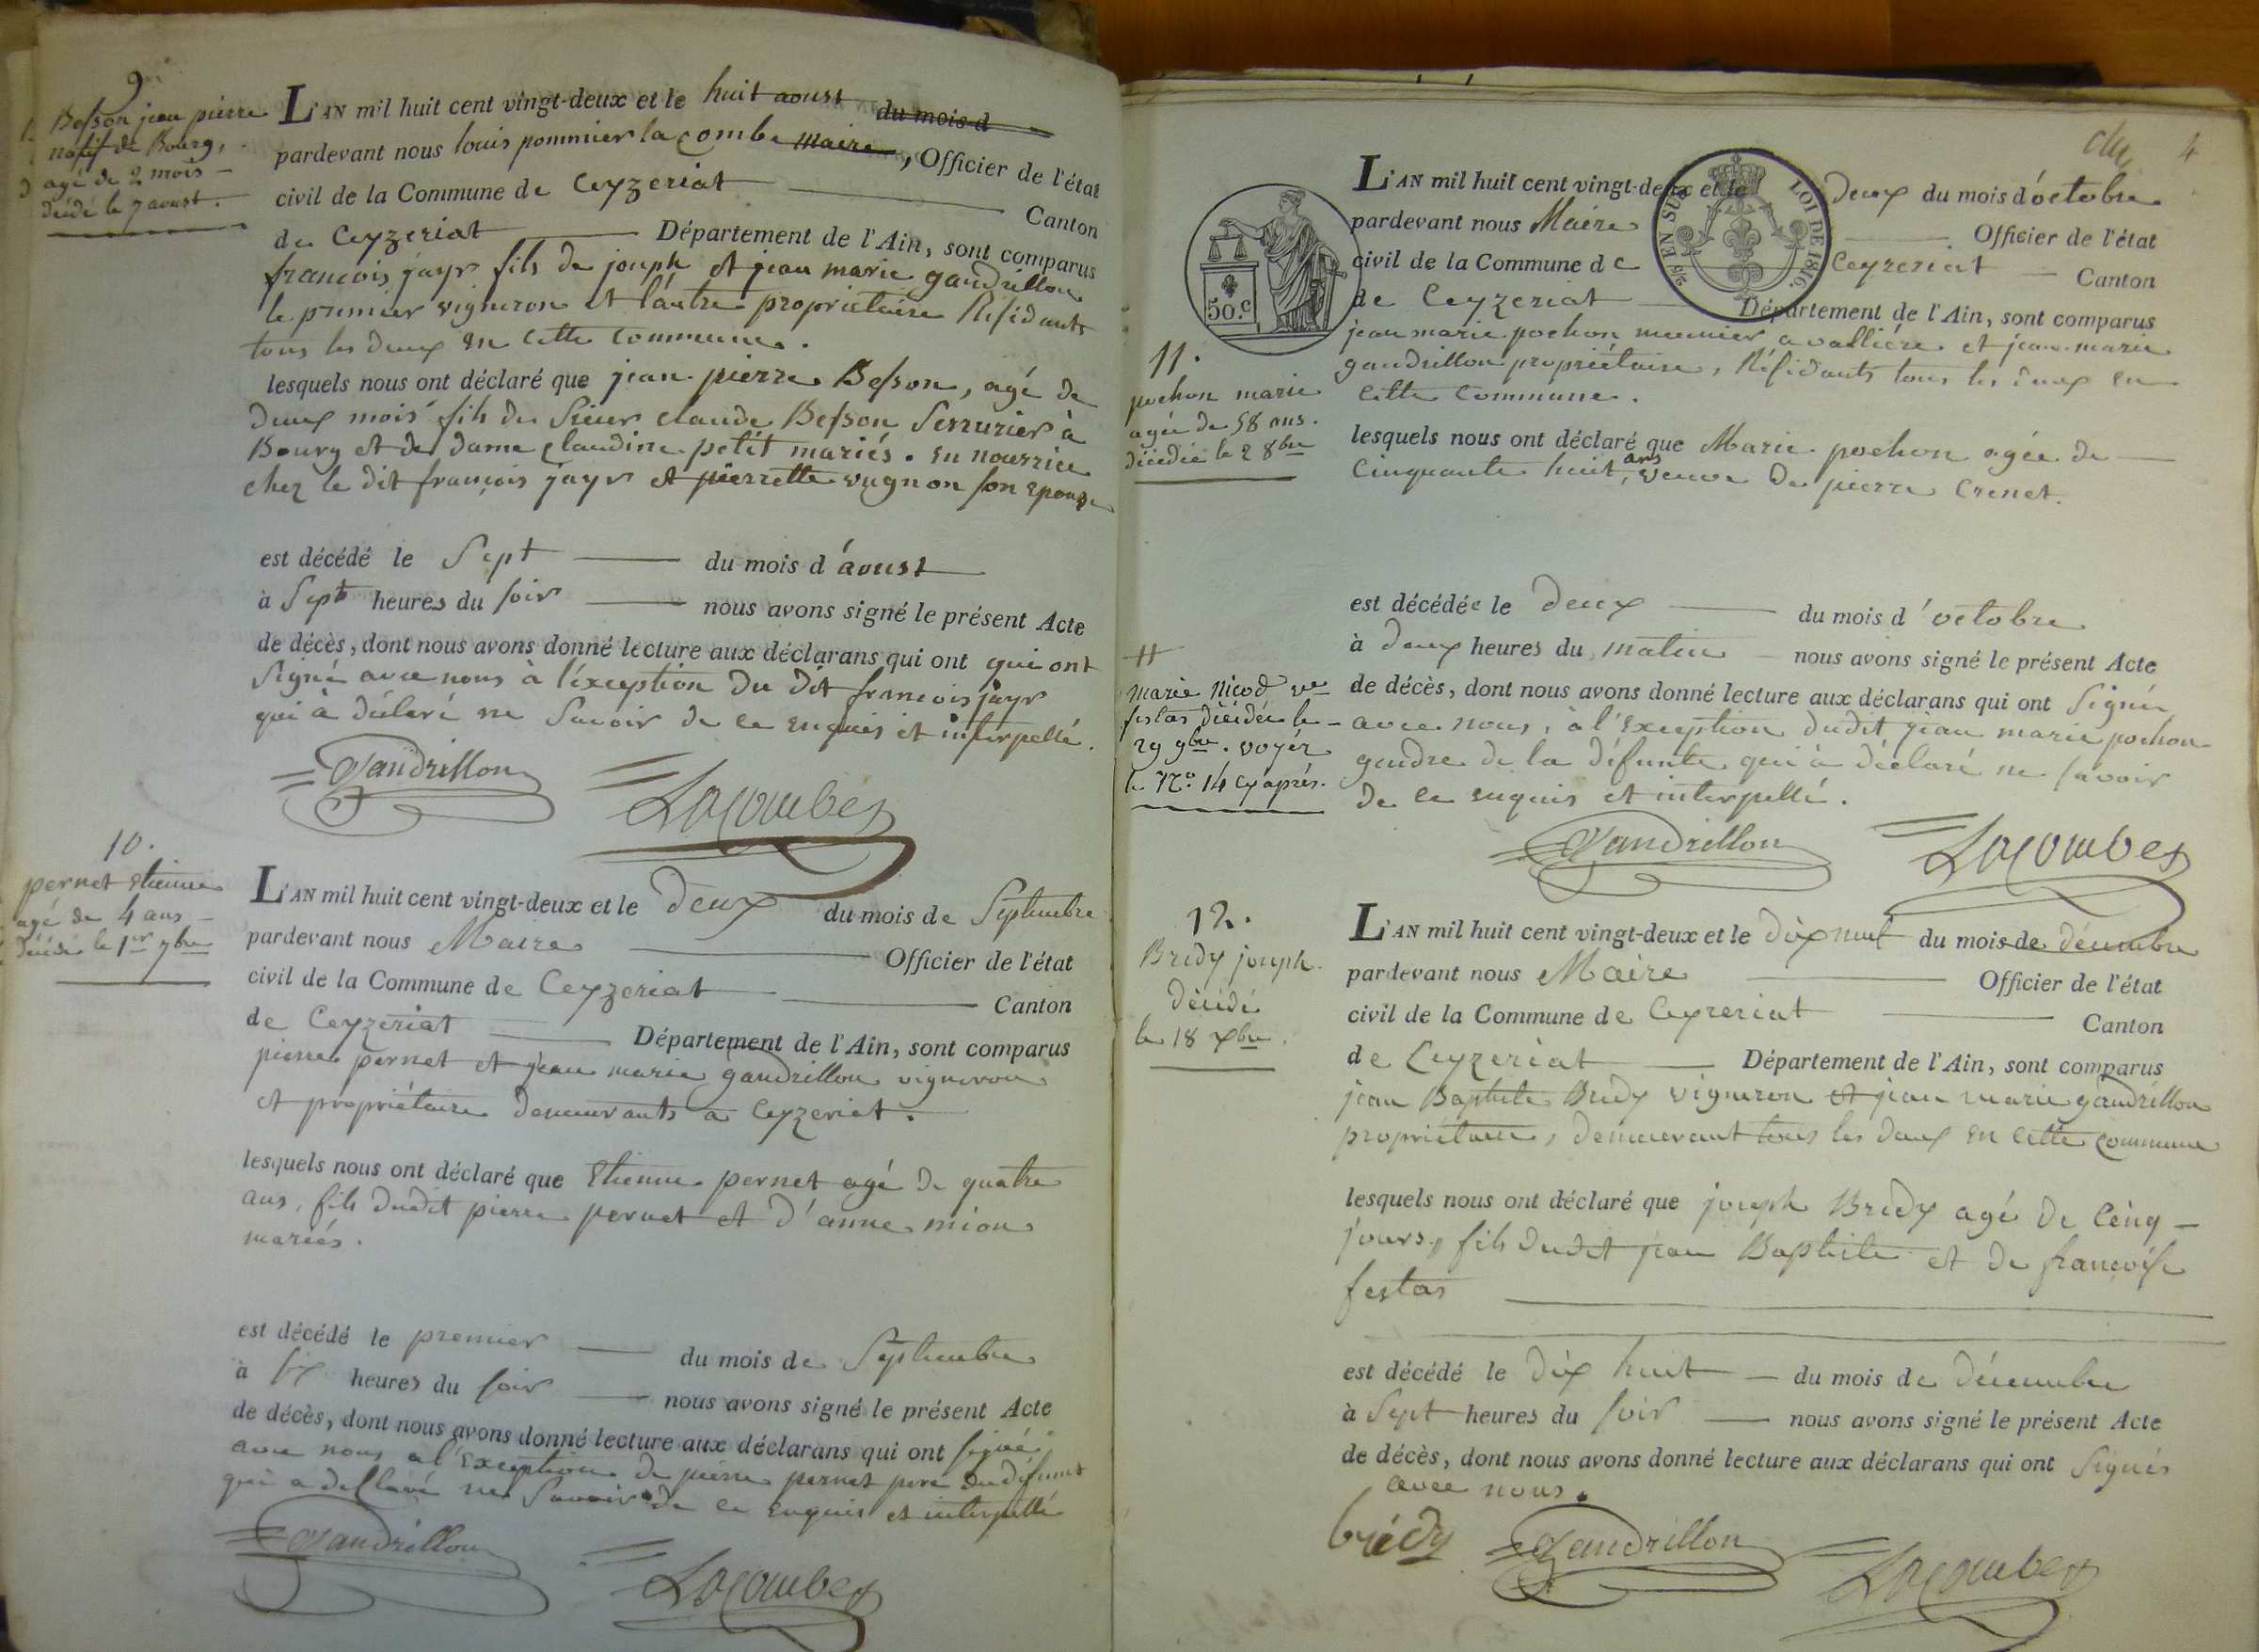 9
Besson jean pierre
natif de Bourg,
agé de 2 mois
décédé le 7 aoust.
L'AN mil huit cent vingt-deux et le huit aoust du mois d
pardevant nous louis pommier la combe maire, Officier de l'état
civil de la Commune de Ceyzeriat Canton
de Ceyzeriat Département de l'Ain, sont comparus
francois jayr fils de joseph et jean marie gaudrillon
le premier vigneron et l'autre proprietaire Résidants
tous les deux en cette commune.
lesquels nous ont déclaré que jean pierre Besson, agé de
deux mois fils de sieur claude Besson Serrurier à
Bourg et de dame claudine petit mariés. en nourrice
chez le dit françois jayr et pierrette vugnon son epouse
est décédé le Sept du mois d'aoust
à Sept heures du soir nous avons signé le présent Acte
de décès, dont nous avons donné lecture aux déclarans qui ont qui ont
Signé avec nous à l'éxception du dit francois jayr
qui à déclaré ne Savoir de ce enquis et interpellé.
Gaudrillon Lacombe
10.
pernet etienne
agé de 4 ans
décédé le 1er 7bre
L'AN mil huit cent vingt-deux et le deux du mois de Septembre
pardevant nous Maire Officier de l'état
civil de la Commune de Ceyzeriat Canton
de Ceyzeriat Département de l'Ain, sont comparus
pierre pernet et jean marie gaudrillon vigneron
et propriétaire demeurants a Ceyzeriat.
lesquels nous ont déclaré que Etienne pernet agé de quatre
ans, fils dudit pierre pernet et d'anne mion
mariés.
est décédé le premier du mois de Septembre
à six heures du soir nous avons signé le présent Acte
de décès, dont nous avons donné lecture aux déclarans qui ont signé
avec nous a l'exception de pierre pernet pere du défunt
qui a déclaré ne Savoir de ce enquis et interpellé
Gaudrillon Lacombe
4
50.c
EN SUS LOI DE 1816.
11.
pochon marie
agée de 58 ans.
décédée le 2 8bre
L'AN mil huit cent vingt-deux et le deux du mois d'octobre
pardevant nous Maire Officier de l'état
civil de la Commune de Ceyzeriat Canton
de Ceyzeriat Département de l'Ain, sont comparus
jean marie pochon meunier a vallière et jean marie
gaudrillon propriétaire, Résidants tous les deux en
cette commune.
lesquels nous ont déclaré que Marie pochon agée de
cinquante huit ans, veuve de pierre Crenet.
est décédée le deux du mois d'octobre
à deux heures du matin nous avons signé le présent Acte
de décès, dont nous avons donné lecture aux déclarans qui ont Signé
avec nous, à l'exception dudit jean marie pochon
gendre de la défunte qui à déclaré ne savoir
de ce enquis et interpellé.
Gaudrillon Lacombe
marie nicod ve
festas décédée le
29 9bre. voyér
le No. 14 cy après.
12.
Bredy joseph.
décédé
le 18 Xbre.
L'AN mil huit cent vingt-deux et le dix neuf du mois de décembre
pardevant nous Maire Officier de l'état
civil de la Commune de Ceyzeriat Canton
de Ceyzeriat Département de l'Ain, sont comparus
jean Baptiste Bredy vigneron et jean marie gaudrillon
propriétaire, demeurant tous les deux en cette commune
lesquels nous ont déclaré que joseph Bredy agé de cinq
jours, fils dudit jean Baptiste et de françoise
festas
est décédé le dix huit du mois de décembre
à Sept heures du soir nous avons signé le présent Acte
de décès, dont nous avons donné lecture aux déclarans qui ont Signés
avec nous.
brédy Gaudrillon Lacombe